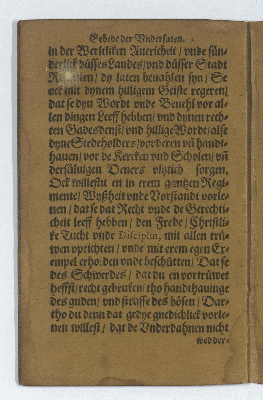 Gebede der Vnderſaten.
in der Wertliken Auericheit / vnde ſün-
derlick düſſes Landes / vnd düſſer Stadt
dy laten beuahlen ſyn / Se
ock mit dynem hilligem Geiſte regeren /
dat ſe dyn Wordt vnde Beuehl vor al-
len dingen Leeff hebben / vnd dynen rech-
ten Gadesdenſt / vnd hillige Wordt / alſe
dyne Stedeholders / vorderen vñ handt-
hauen / vor de Kercken vnd Scholen / vñ
derſüluigen Deners vlytich ſorgen.
Ock willeſtu en in erem gantzen Regi-
mente / Wyßheit vnde Vorſtandt vorle-
nen / dat ſe dat Recht vnde de Gerechti-
cheit leeff hebben / den Frede / Chriſtli-
ke Tucht vnde Diſciplin, mit allen trü-
wen vprichten / vnde mit erem egen Ex-
empel erholden vnde beſchütten / Dat ſe
des Schwerdes / dat du en vortrüwet
heffſt / recht gebruken / tho handthauinge
des guden / vnd ſtraffe des böſen / Dar-
tho du denn dat gedye gnedichlick vorle-
nen willeſt / dat de Vnderdahnen nicht
wedder-